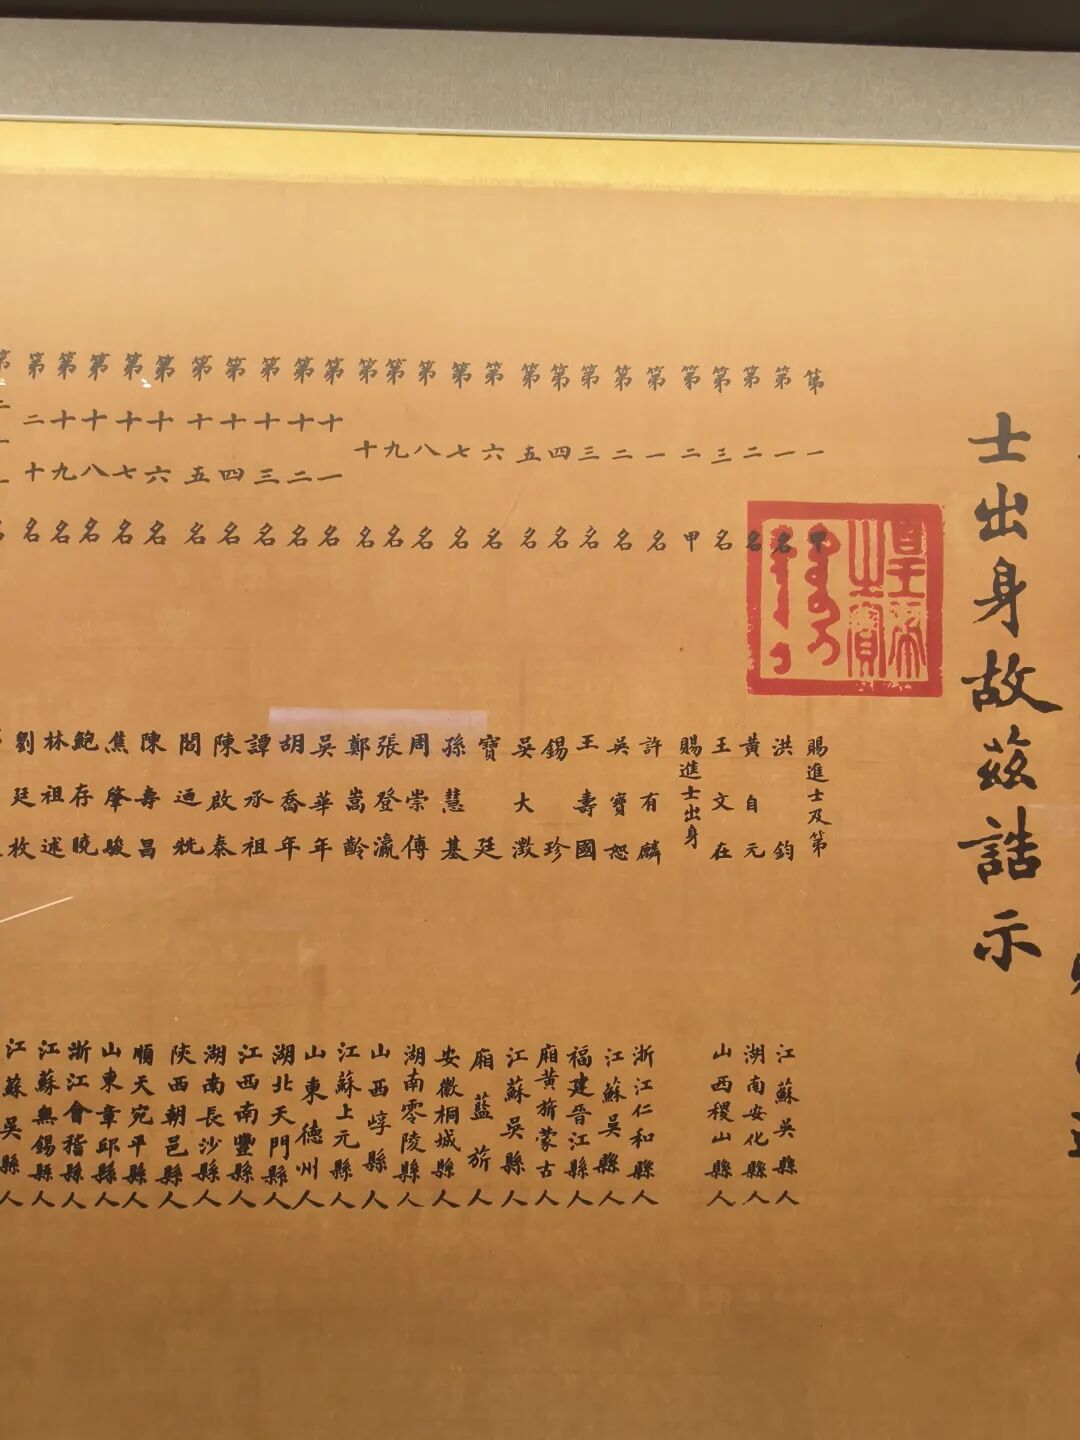 士出身故茲誥示
皇帝之寶
第一甲 賜進士及第
第一名 洪鈞 江蘇吳縣人
第二名 黃自元 湖南安化縣人
第三名 王文在 山西稷山縣人
第二甲 賜進士出身
第一名 許有麟 浙江仁和縣人
第二名 吳寶恕 江蘇吳縣人
第三名 王壽國 福建晉江縣人
第四名 錫珍 廂黃旂蒙古人
第五名 吳大澂 江蘇吳縣人
第六名 寶廷 廂藍旂人
第七名 孫慧基 安徽桐城縣人
第八名 周崇傅 湖南零陵縣人
第九名 張登瀛 山西崞縣人
第十名 鄭嵩齡 江蘇上元縣人
第十一名 吳華年 山東德州人
第十二名 胡喬年 湖北天門縣人
第十三名 譚承祖 江西南豐縣人
第十四名 陳啟泰 湖南長沙縣人
第十五名 閻迺兟 陝西朝邑縣人
第十六名 陳壽昌 順天宛平縣人
第十七名 焦肇駿 山東章邱縣人
第十八名 鮑存曉 浙江會稽縣人
第十九名 林祖述 江蘇無錫縣人
第二十名 劉廷枚 江蘇吳縣人